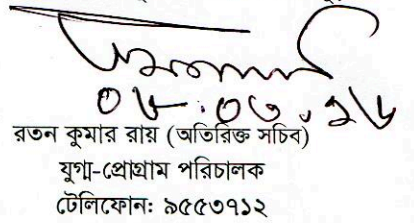 ০৮.০৩.১৬
রতন কুমার রায় (অতিরিক্ত সচিব)
যুগ্ম-প্রোগ্রাম পরিচালক
টেলিফোন: ৯৫৫৩৭১২